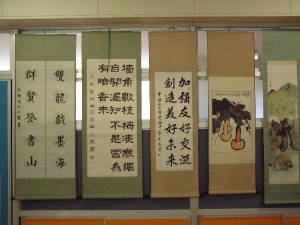 加强友好交流
創造美好未來
墻角數枝梅凌寒獨
自開遙知不是雪為
有暗香來
雙龍戲墨海
群賢登書山